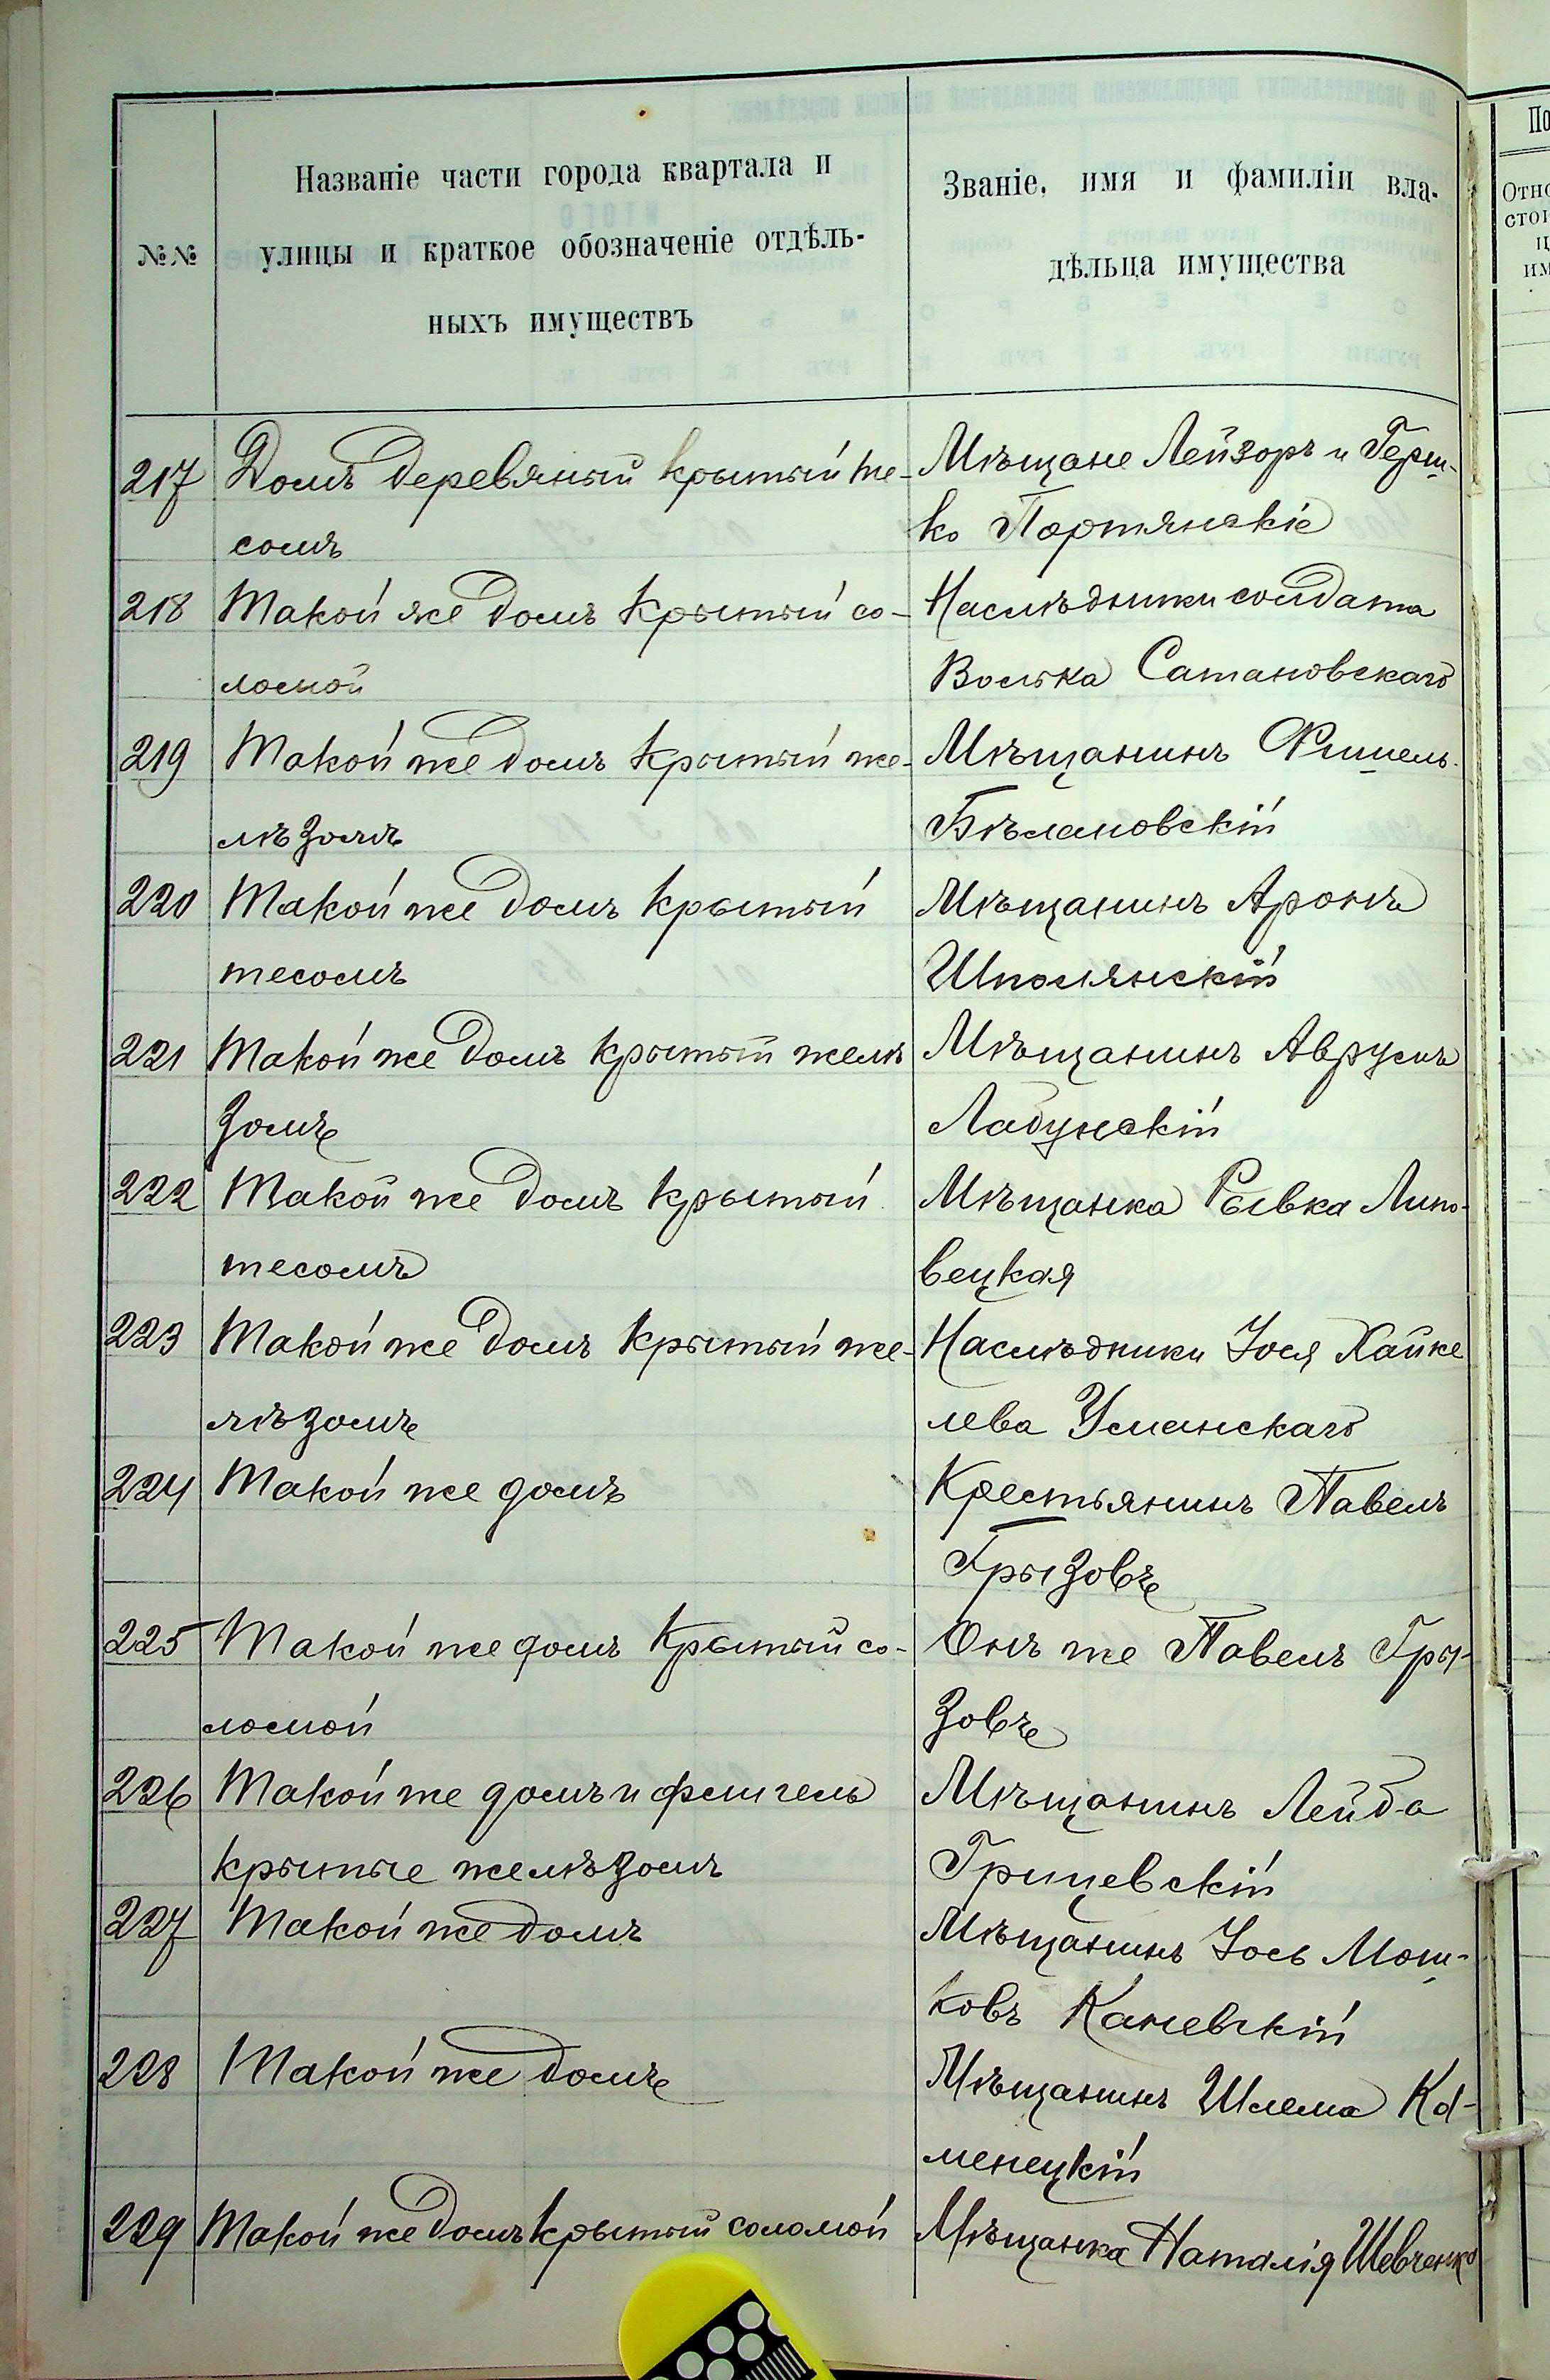 №№
Названіе части города квартала и
улицы и краткое обозначеніе отдѣль-
ныхъ имуществъ
Званіе, имя и фамиліи вла-
дѣльца имущества
217 Домъ деревяный крытый те- Мѣщане Лейзоръ и Герш-
сомъ ко Портянскіе
218 Такой же домъ крытый со- Наслѣдники солдата
ломой Волька Сатановскаго
219 Такой же домъ крытый же- Мѣщанинъ Фишель
лѣзомъ Бѣлановскій
220 Такой же домъ крытый Мѣщанинъ Аронъ
тесомъ Шполянскій
221 Такой же домъ крытый желѣ Мѣщанинъ Аврумъ
зомъ Ладунскій
222 Такой же домъ крытый Мѣщанка Рывка Липо-
тесомъ вецкая
223 Такой же домъ крытый же- Наслѣдники Іося Хайке
лѣзомъ лева Уманскаго
224 Такой же домъ Крестьянинъ Павелъ
Грызовъ
225 Такой же домъ крытый со- Онъ же Павелъ Гры-
ломой зовъ
226 Такой же домъ и флигель Мѣщанинъ Лейба
крытые желѣзомъ Грицевскій
227 Такой же домъ Мѣщанинъ Іось Мош-
ковъ Каневскій
228 Такой же домъ Мѣщанинъ Шлема Ка-
менецкій
229 Такой же домъ крытый соломой Мѣщанка Наталія Шевченко